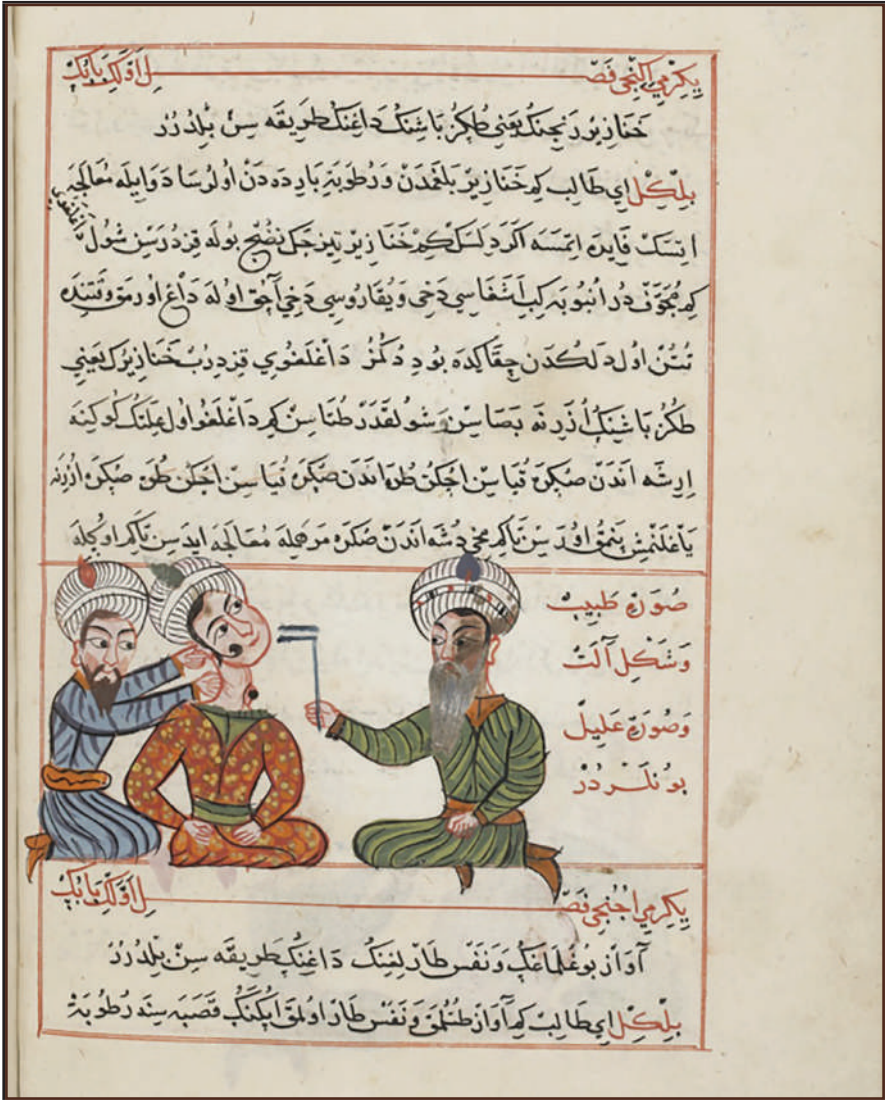 يكرمي اكنجي فصل اولكي بابك
خنازير زنجنك يعني طكز باشنك داغنك طريقه سن بلدرر
بلكل اي طالب كم خنازير بلغمدن و رطوبة بارده دن اولرسا دوايله معالجه
اتسك فايده اتمسه اكر دلسك كم خنازير تيزجك نضج بوله قزدرسن شول داغلغوي
كم مجوف در انبوبه كب اشغاسي دخي و يقاروسي دخي آچق اوله داغ اورمق وقتنده
تتن اول دلكدن چقاكده بودر كز داغلغوي قزدرب خنازيرك يعني
طكز باشنك اذرنه بصاسن و شولقدر طتاسن كم داغلغو اول علتك كوكينه
ارشه اندن صكره قياسن اچكن طره اندن صكره صكره ازرنه
ياغلنمش پنمق اودسن تاكم دشه اندن صكره مرهمله معالجه ايدسن تاكم اوكله
صورة طبيب
و شكل آلت
و صورة عليل
بونلردر
يكرمي اچنجي فصل اولكي بابك
آواز بوغلماغك و نفس طارلغنك داغنك طريقه سن بلدرر
بلكل اي طالب كم آواز طتلمق و نفس طار اولمق ايكنك قصبه سنده رطوبة